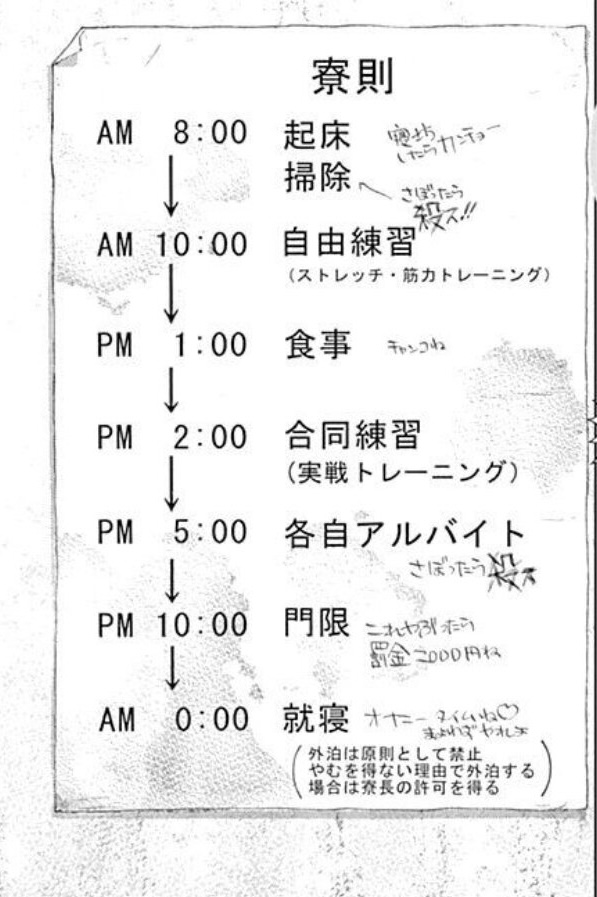 寮則
AM 8:00 起床 寝坊
したらカンチョー
掃除 さぼったら
殺ス!!
AM 10:00 自由練習
(ストレッチ・筋力トレーニング)
PM 1:00 食事 チャンコね
PM 2:00 合同練習
(実戦トレーニング)
PM 5:00 各自アルバイト
さぼったら殺ス
PM 10:00 門限 これやぶったら
罰金2000円ね
AM 0:00 就寝 オナニータイムね♡
(外泊は原則として禁止
やむを得ない理由で外泊する
場合は寮長の許可を得る)